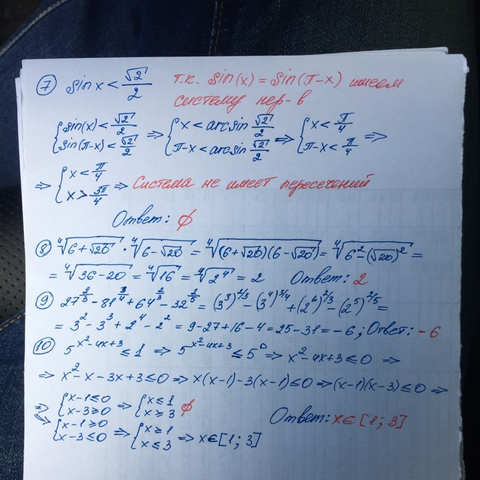 ⑦ Sin x < √2/2 т.к. Sin(x) = Sin(π-x) имеем
систему нер-в
{sin(x) < √2/2; sin(π-x) < √2/2 ⇒ {x < arcsin √2/2; π-x < arcsin √2/2 ⇒ {x < π/4; π-x < π/4 ⇒
⇒ {x < π/4; x > 3π/4 ⇒ Система не имеет пересечений
Ответ: ∅
⑧ ∜(6+√20) · ∜(6-√20) = ∜((6+√20)(6-√20)) = ∜(6²-(√20)²) =
= ∜(36-20) = ∜16 = ∜(2⁴) = 2 Ответ: 2
⑨ 27^(2/3) - 81^(3/4) + 64^(2/3) - 32^(2/5) = (3³)^(2/3) - (3⁴)^(3/4) + (2⁶)^(2/3) - (2⁵)^(2/5) =
= 3² - 3³ + 2⁴ - 2² = 9-27+16-4 = 25-31 = -6; Ответ: -6
⑩ 5^(x²-4x+3) ≤ 1 ⇒ 5^(x²-4x+3) ≤ 5⁰ ⇒ x²-4x+3 ≤ 0 ⇒
⇒ x²-x-3x+3 ≤ 0 ⇒ x(x-1)-3(x-1) ≤ 0 ⇒ (x-1)(x-3) ≤ 0 ⇒
⇒ {x-1 ≤ 0; x-3 ≥ 0 ⇒ {x ≤ 1; x ≥ 3 ∅
⇒ {x-1 ≥ 0; x-3 ≤ 0 ⇒ {x ≥ 1; x ≤ 3 ⇒ x∈[1; 3] Ответ: x∈[1; 3]